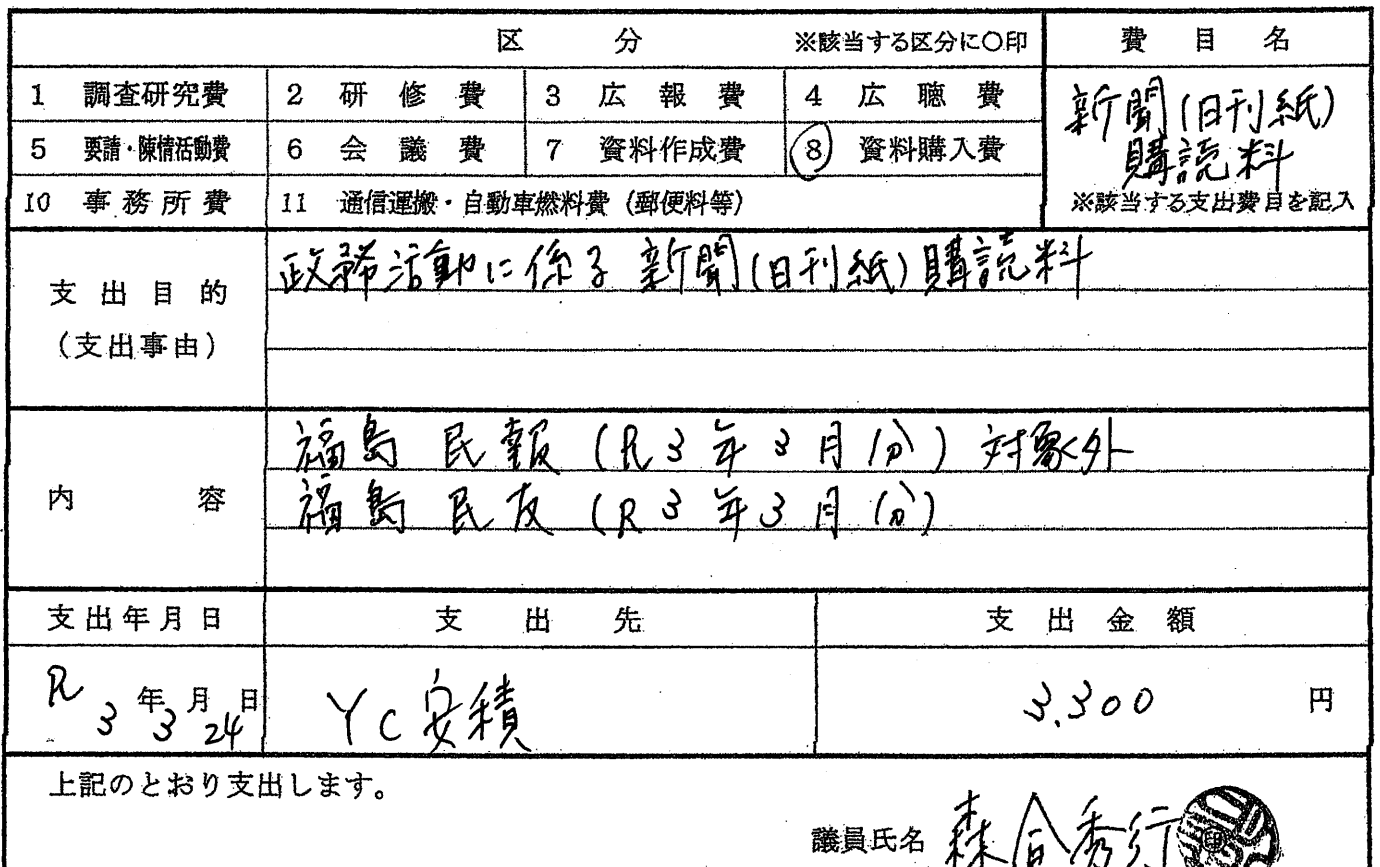 区　分　※該当する区分に○印　費　目　名
1 調査研究費　2 研 修 費　3 広 報 費　4 広 聴 費
新聞(日刊紙)
購読料
5 要請・陳情活動費　6 会 議 費　7 資料作成費　8 資料購入費
10 事務所費　11 通信運搬・自動車燃料費（郵便料等）　※該当する支出費目を記入
支出目的
（支出事由）
政務活動に係る新聞(日刊紙)購読料
内　容
福島民報(R3年3月分)対象外
福島民友(R3年3月分)
支出年月日　支　出　先　支　出　金　額
R3年3月24日　YC安積　3,300円
上記のとおり支出します。
議員氏名 森合秀行